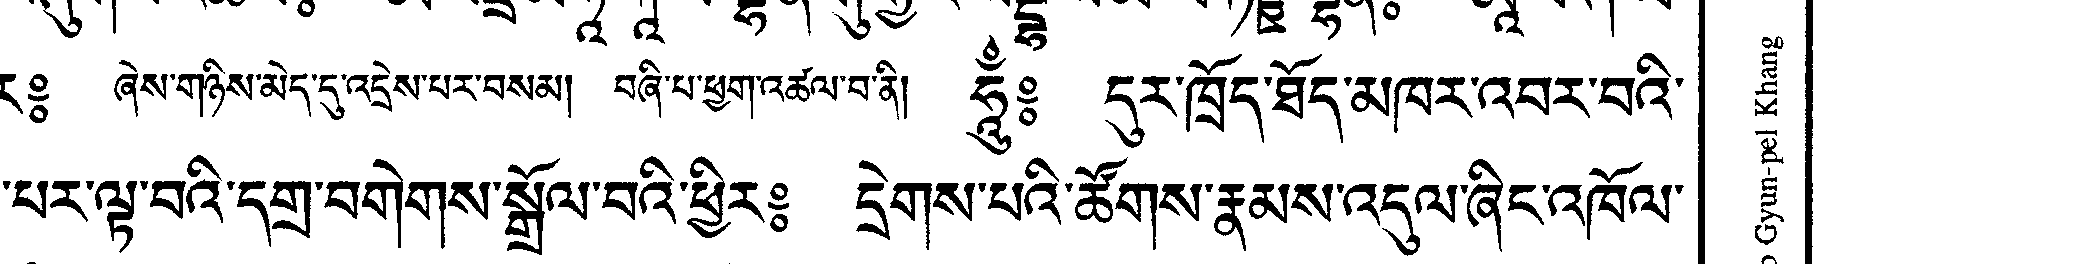 ར༔ ཞེས་གཉིས་མེད་དུ་འདྲེས་པར་བསམ། བཞི་པ་ཕྱག་འཚལ་བ་ནི། ཧཱུྃ༔ དུར་ཁྲོད་ཐོད་མཁར་འབར་བའི་
་པར་ལྟ་བའི་དགྲ་བགེགས་སྒྲོལ་བའི་ཕྱིར༔ དྲེགས་པའི་ཚོགས་རྣམས་འདུལ་ཞིང་འཁོལ་
Gyun-pel Khang